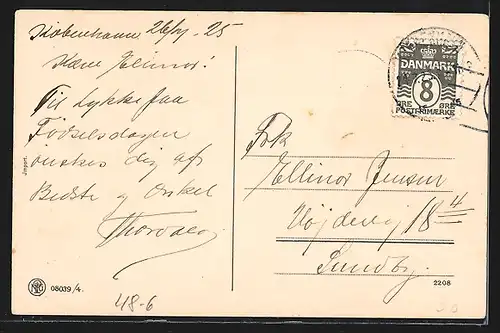 København 26/4-25
Kære Ellinor!
Til Lykke paa
Fødselsdagen
ønskes dig af
Bedste og Onkel
Thorvald
DANMARK
8
ØRE ØRE
POSTFRIMÆRKE
Frk
Ellinor Jensen
Højdevej 18 4
Sundby.
Import.
08039/4.
2208
48-6